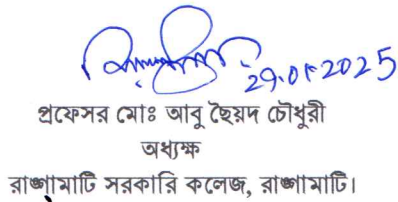 29.01.2025
প্রফেসর মোঃ আবু ছৈয়দ চৌধুরী
অধ্যক্ষ
রাঙ্গামাটি সরকারি কলেজ, রাঙ্গামাটি।